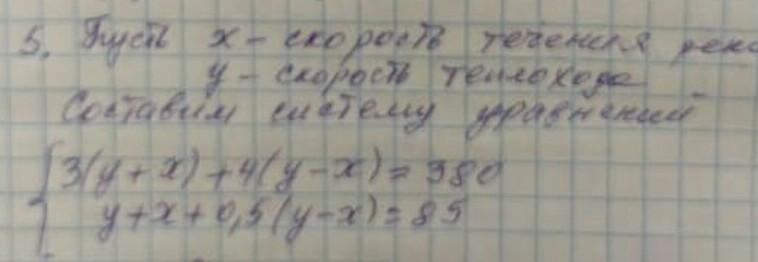 5. Пусть x - скорость течения
y - скорость теплохода
Составим систему уравнений
3(y+x)+4(y-x)=380
y+x+0,5(y-x)=85